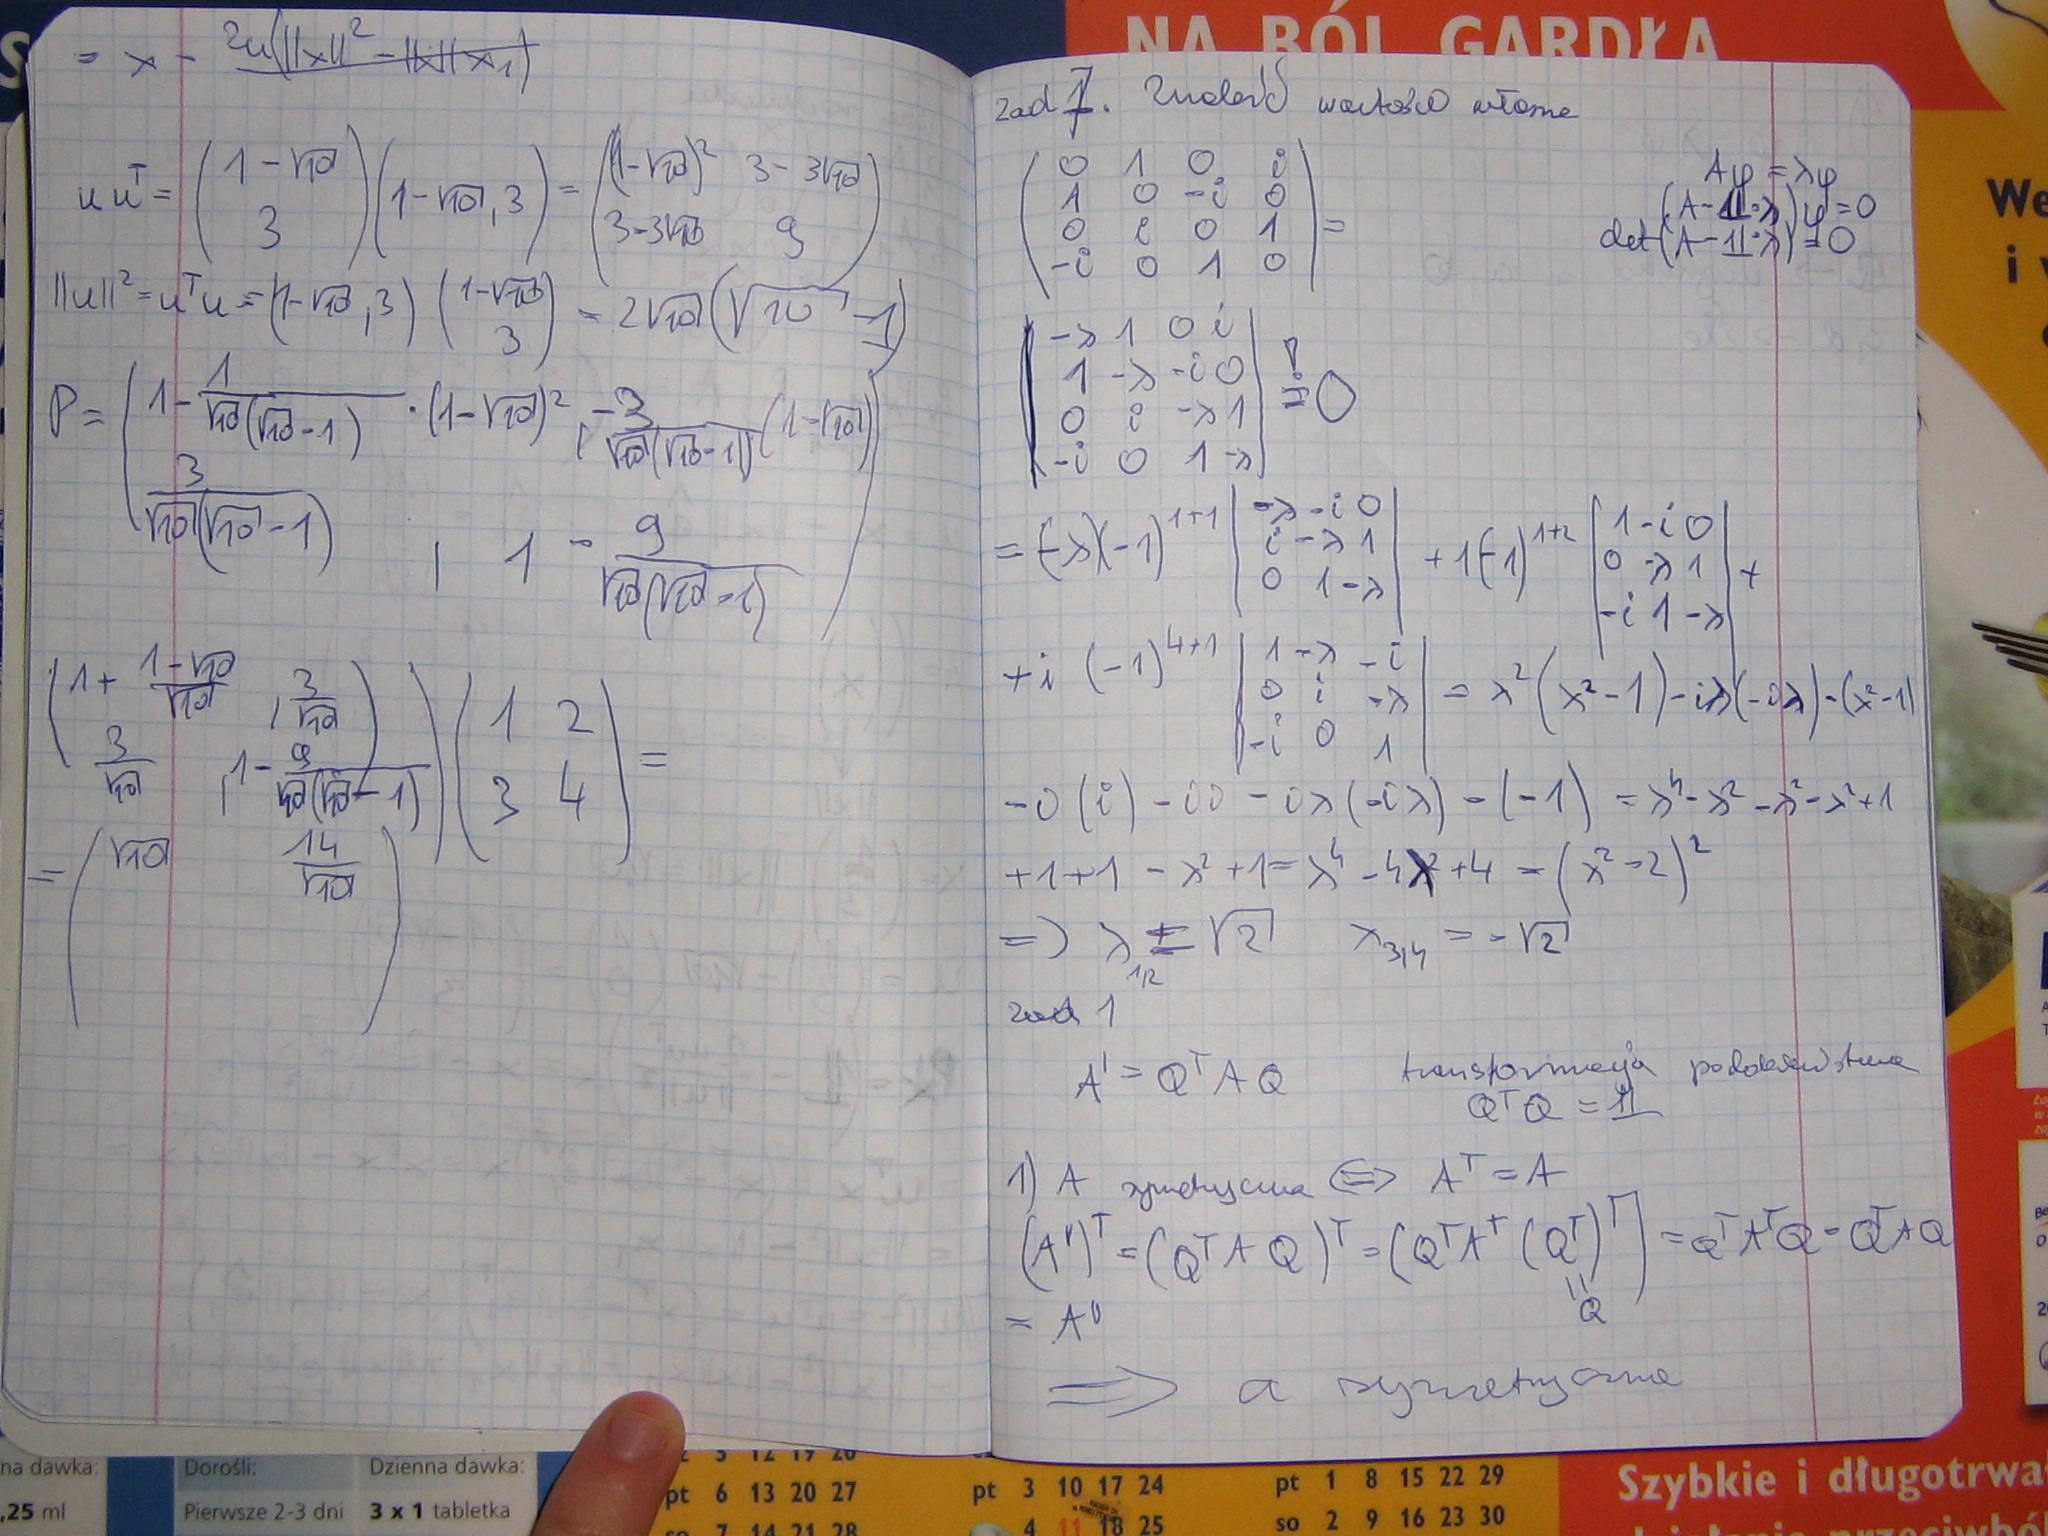 = x - 2u(||x||² - ||x|| x₁)
u uᵀ = (1-√10 3) (1-√10, 3) = ((1-√10)² 3-3√10
3-3√10 9)
||u||² = uᵀu = (1-√10, 3) (1-√10 3) = 2√10(√10 - 1)
P = (1 - 1/(√10(√10-1)) · (1-√10)² , -3/(√10(√10-1)) (1-√10)
3/(√10(√10-1)) , 1 - 9/(√10(√10-1)))
(1 + (1-√10)/√10 , 3/√10
3/√10 , 1 - 9/(√10(√10-1))) (1 2
3 4) =
= (√10 14/√10)
zad 7. Znaleźć wartości własne
0 1 0 i
1 0 -i 0
0 i 0 1 =
-i 0 1 0
Aφ = λφ
(A - 𝟙·λ)φ = 0
det(A - 𝟙·λ) = 0
-λ 1 0 i
1 -λ -i 0 != 0
0 i -λ 1
-i 0 1 -λ
= (-λ)(-1)¹⁺¹ |-λ -i 0
i -λ 1
0 1 -λ| + 1(-1)¹⁺² |1 -i 0
0 -λ 1
-i 1 -λ| +
+ i (-1)⁴⁺¹ |1 -λ -i
0 i -λ
-i 0 1| = λ²(λ²-1) - iλ(-iλ) - (λ²-1)
-i(i) - ii - iλ(-iλ) - (-1) = λ⁴ - λ² - λ² - λ² + 1
+1+1 - λ² + 1 = λ⁴ - 4λ² + 4 = (λ²-2)²
=> λ₁,₂ = √2 λ₃,₄ = -√2
zad 1
A' = QᵀAQ transformacja podobieństwa
QᵀQ = 𝟙
1) A symetryczna <=> Aᵀ = A
(A')ᵀ = (QᵀAQ)ᵀ = (QᵀAᵀ(Qᵀ)ᵀ) = QᵀAᵀQ = QᵀAQ
" Q
= A'
=> a symetryczna
NA BÓL GARDŁA
We
i w
na dawka:
,25 ml
Dorośli:
Pierwsze 2-3 dni
Dzienna dawka:
3 x 1 tabletka
5 12 19 26
pt 6 13 20 27
so 7 14 21 28
pt 3 10 17 24
4 11 18 25
pt 1 8 15 22 29
so 2 9 16 23 30
Szybkie i długotrwa